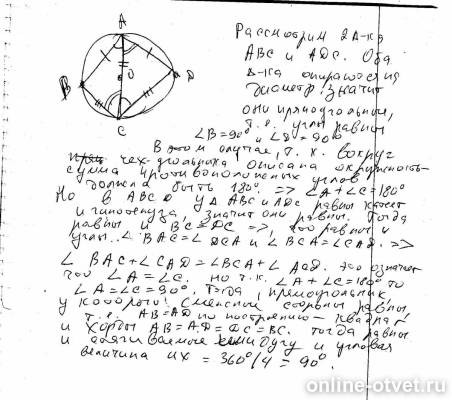 A
B
O
D
C
Рассмотрим 2 Δ-ка
ABC и ADC. Оба
Δ-ка опираются на
диаметр, значит
они прямоугольные,
т.е. углы равны
∠B=90° и ∠D=90°
В этом случае, т.к. вокруг
чет-угольника описана окружность
сумма противоположных углов
должна быть 180°. => ∠A+∠C=180°
Но в ABCD у Δ ABC и ADC равны катет
и гипотенуза, значит они равны. Тогда
равны и BC=DC =>, то равны и
углы. ∠BAC=∠DCA и ∠BCA=∠CAD. =>
∠BAC+∠CAD=∠BCA+∠ACD. Это означает
что ∠A=∠C. Но т.к. ∠A+∠C=180° то
∠A=∠C=90°. Тогда, прямоугольник
у которого смежные стороны равны
т.е. AB=AD по построению - квадрат
и хорды AB=AD=DC=BC. тогда равны
и стягиваемые ими дуги и угловая
величина их = 360°/4 = 90°.
online-otvet.ru